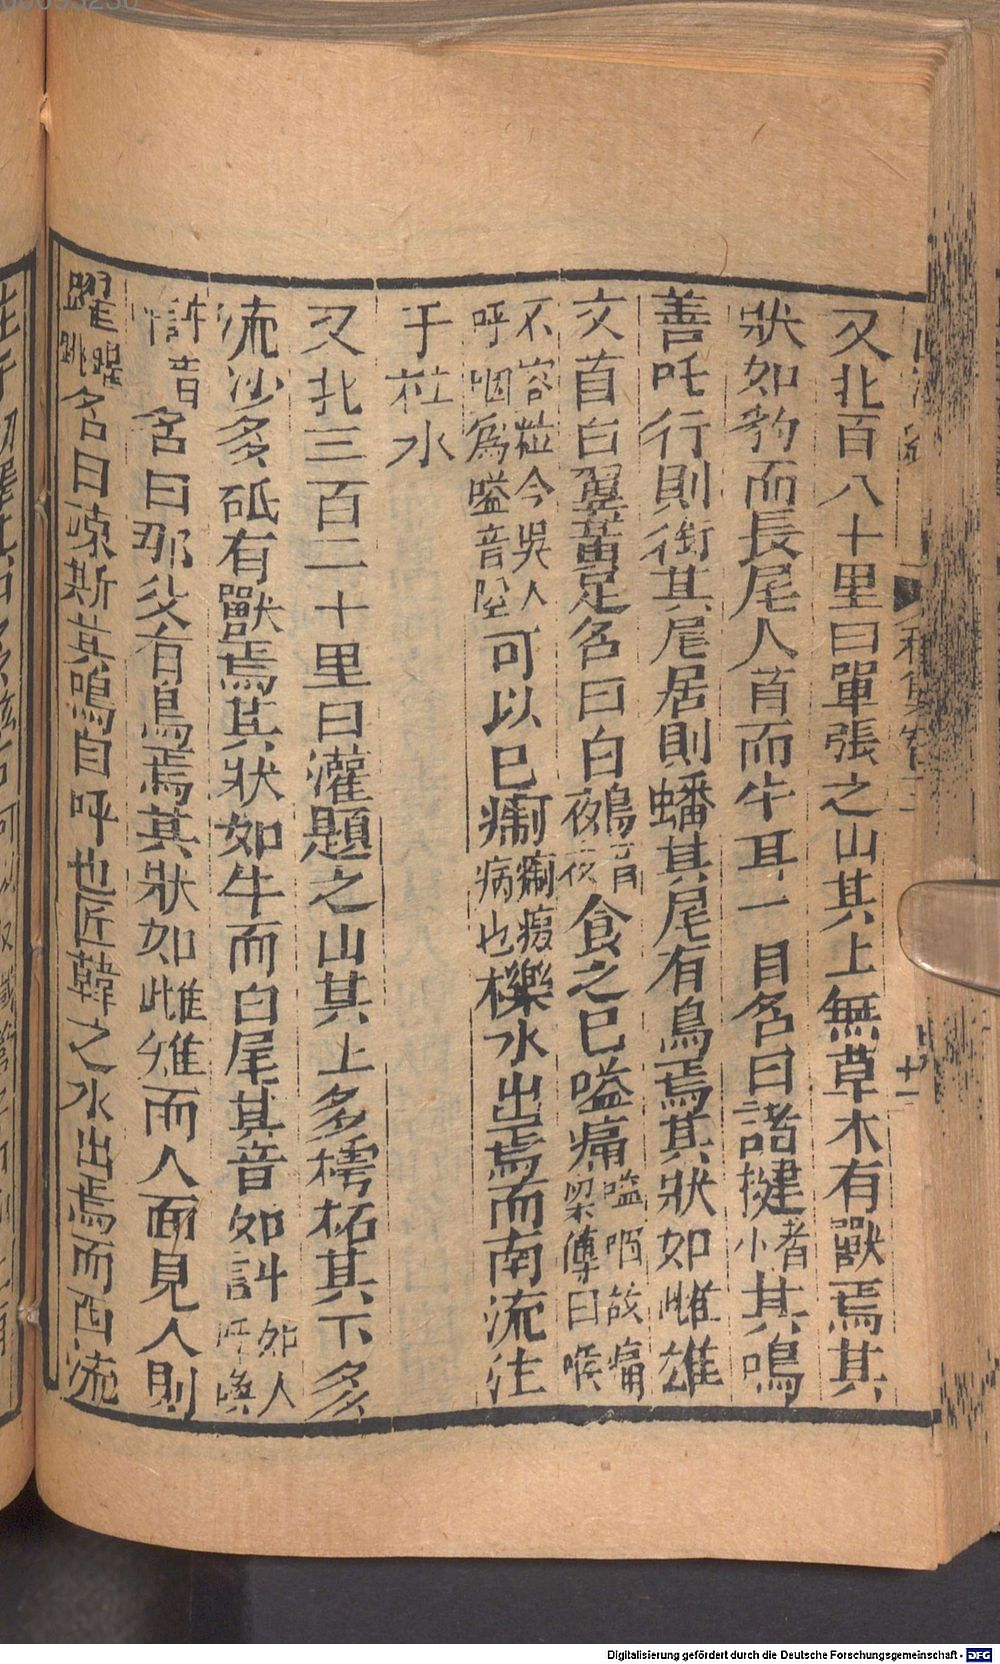 又北百八十里曰單張之山其上無草木有獸焉其
狀如豹而長尾人首而牛耳一目名曰諸犍音小其鳴
善吒行則銜其尾居則蟠其尾有鳥焉其狀如雌雄
文首白翼黃足名曰白鵺音夜食之已嗌痛嗌咽故痛梁傳曰喉
不容粒今吳人呼咽為嗌音隘可以已痸痸瘕病也櫟水出焉而南流注
于杠水
又北三百二十里曰灌題之山其上多樗柘其下多
流沙多砥有獸焉其狀如牛而白尾其音如訆如人呼喚
訆音名曰那父有鳥焉其狀如雌雉而人面見人則
躍躍跳名曰竦斯其鳴自呼也匠韓之水出焉而西流
十一
00095230
Digitalisierung gefördert durch die Deutsche Forschungsgemeinschaft - DFG